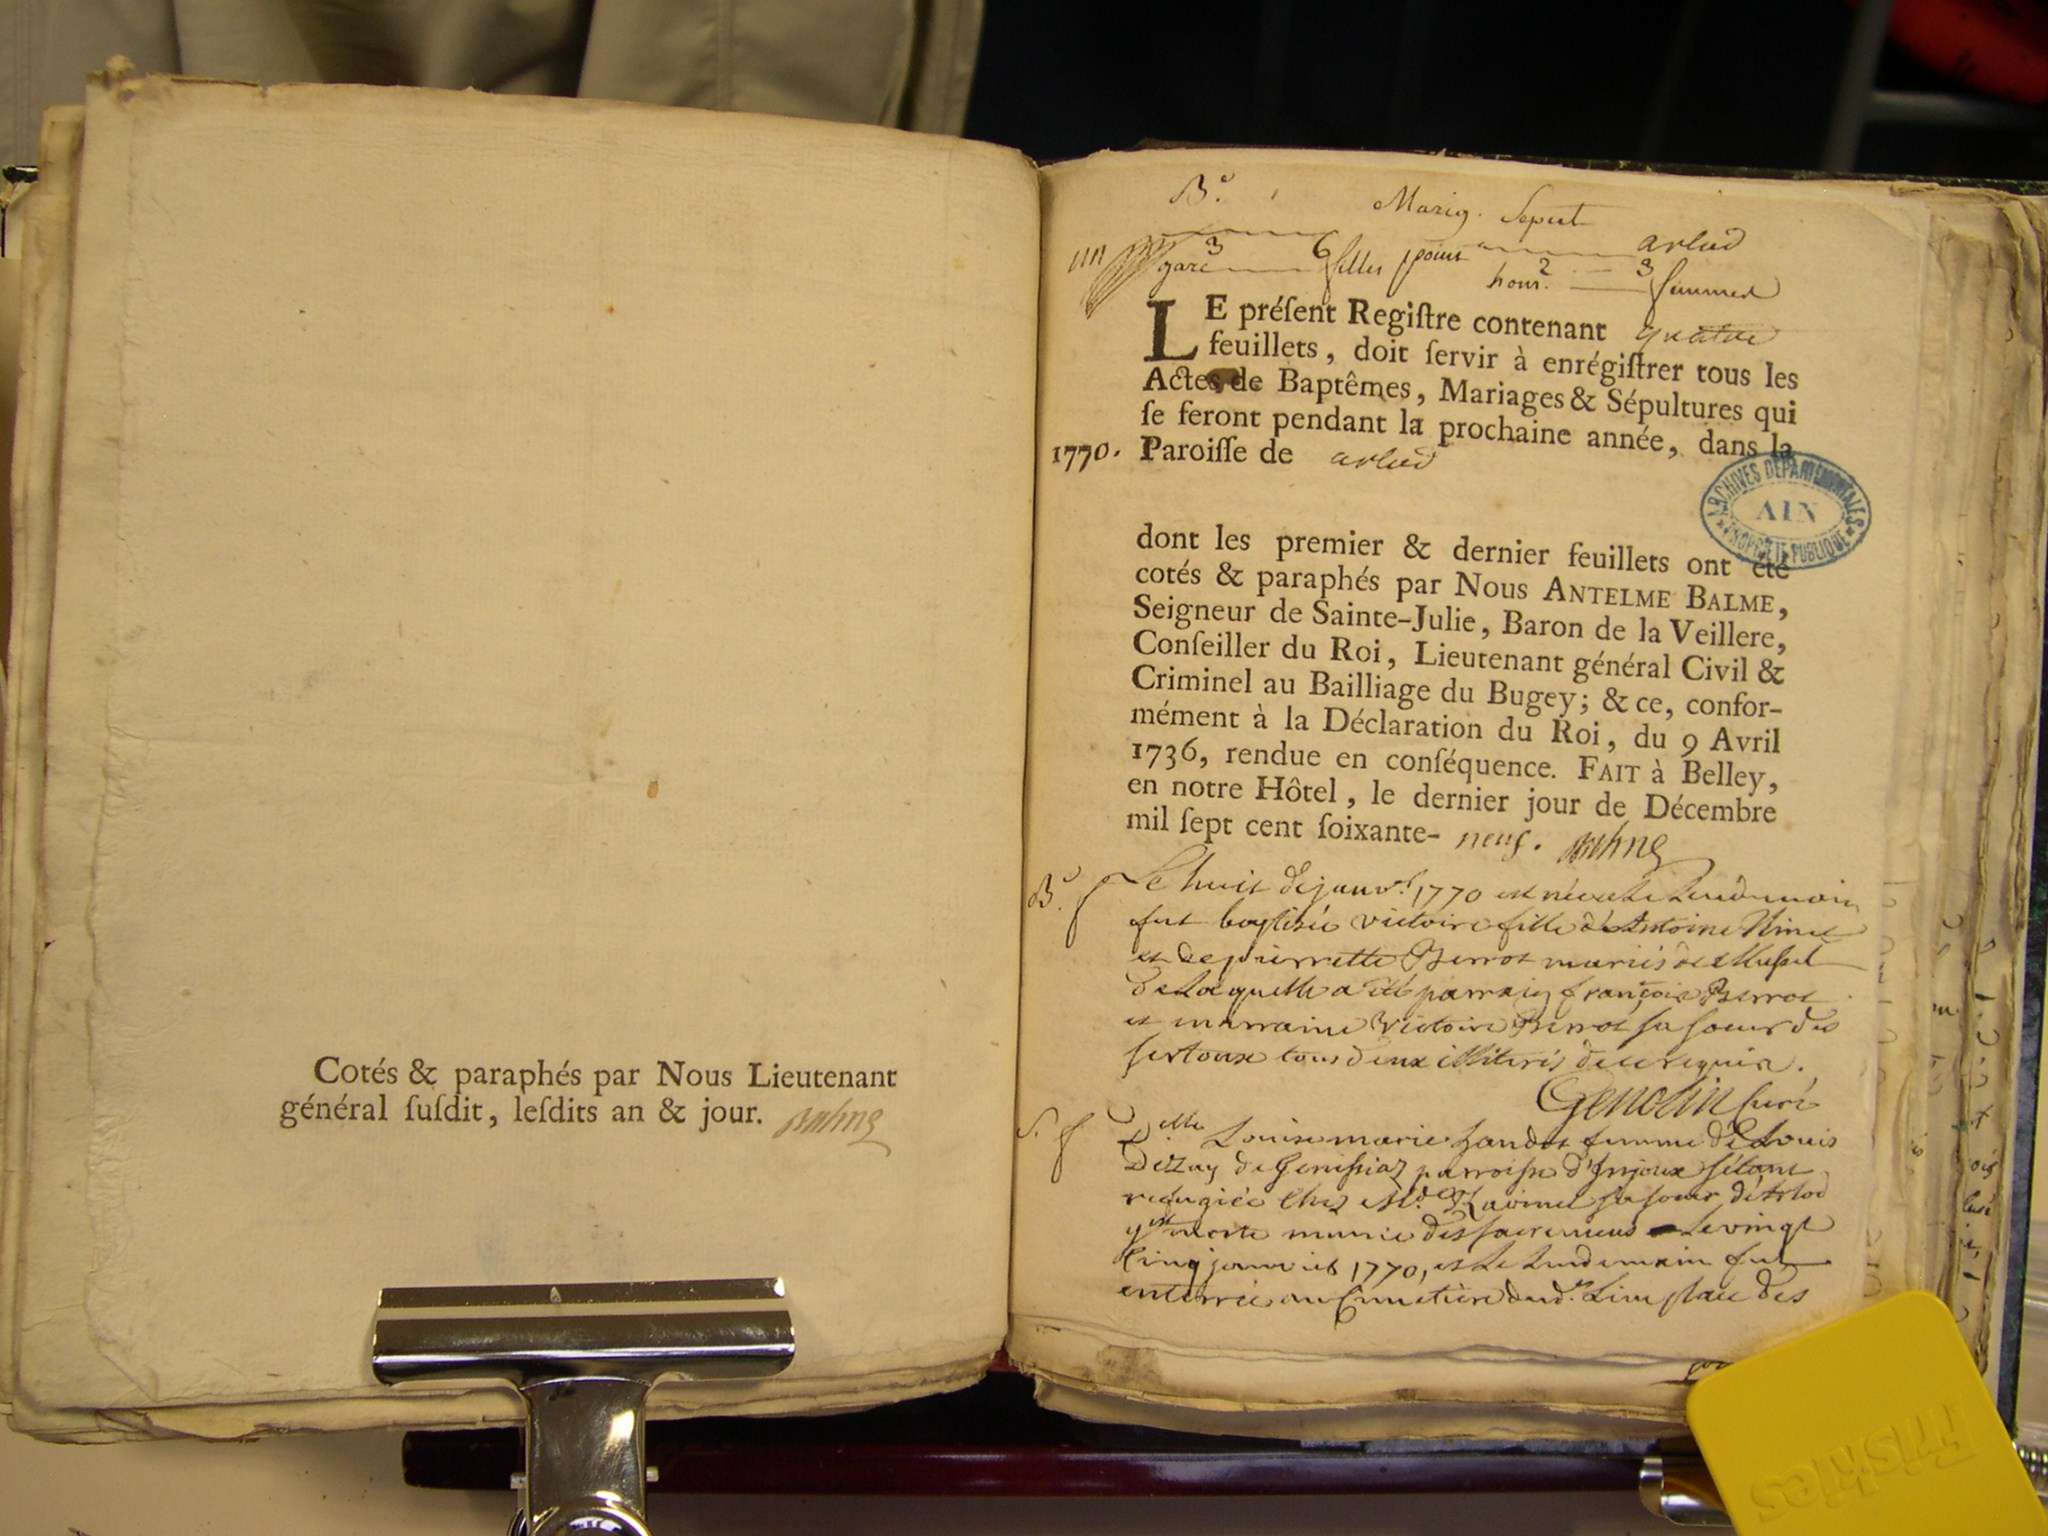 Cotés & paraphés par Nous Lieutenant
général ſuſdit, leſdits an & jour.
B.e Marig. Sepult
3 6 arlod
garc filles point 2 3
hom. femmes
LE préſent Regiſtre contenant quatre
feuillets, doit ſervir à enrégiſtrer tous les
Actes de Baptêmes, Mariages & Sépultures qui
ſe feront pendant la prochaine année, dans la
1770. Paroiſſe de arlod
ARCHIVES DÉPARTEMENTALES
AIN
PROPRIÉTÉ PUBLIQUE
dont les premier & dernier feuillets ont été
cotés & paraphés par Nous ANTELME BALME,
Seigneur de Sainte-Julie, Baron de la Veillere,
Conſeiller du Roi, Lieutenant général Civil &
Criminel au Bailliage du Bugey; & ce, confor-
mément à la Déclaration du Roi, du 9 Avril
1736, rendue en conſéquence. FAIT à Belley,
en notre Hôtel, le dernier jour de Décembre
mil ſept cent ſoixante- neuf.
B. f Le huit de janv.r 1770 est née et le lendemain
fut baptisée victoire fille d'Antoine
et de pierrette Berrot mariés de Mussel
de laquelle a été parrain françois Berrot
et marraine victoire Berrot sa soeur des
tous deux illiterés de ce requis.
Genolin Curé
S. f D.elle Louise marie femme de Louis
de Genissiaz parroisse d'Injoux s'étant
refugiée chez sa soeur d'Arlod
y est morte munie des sacremens le vingt
cinq janvier 1770, et le lendemain fut
enterrée au Cimetière dud. lieu place des
Friskies